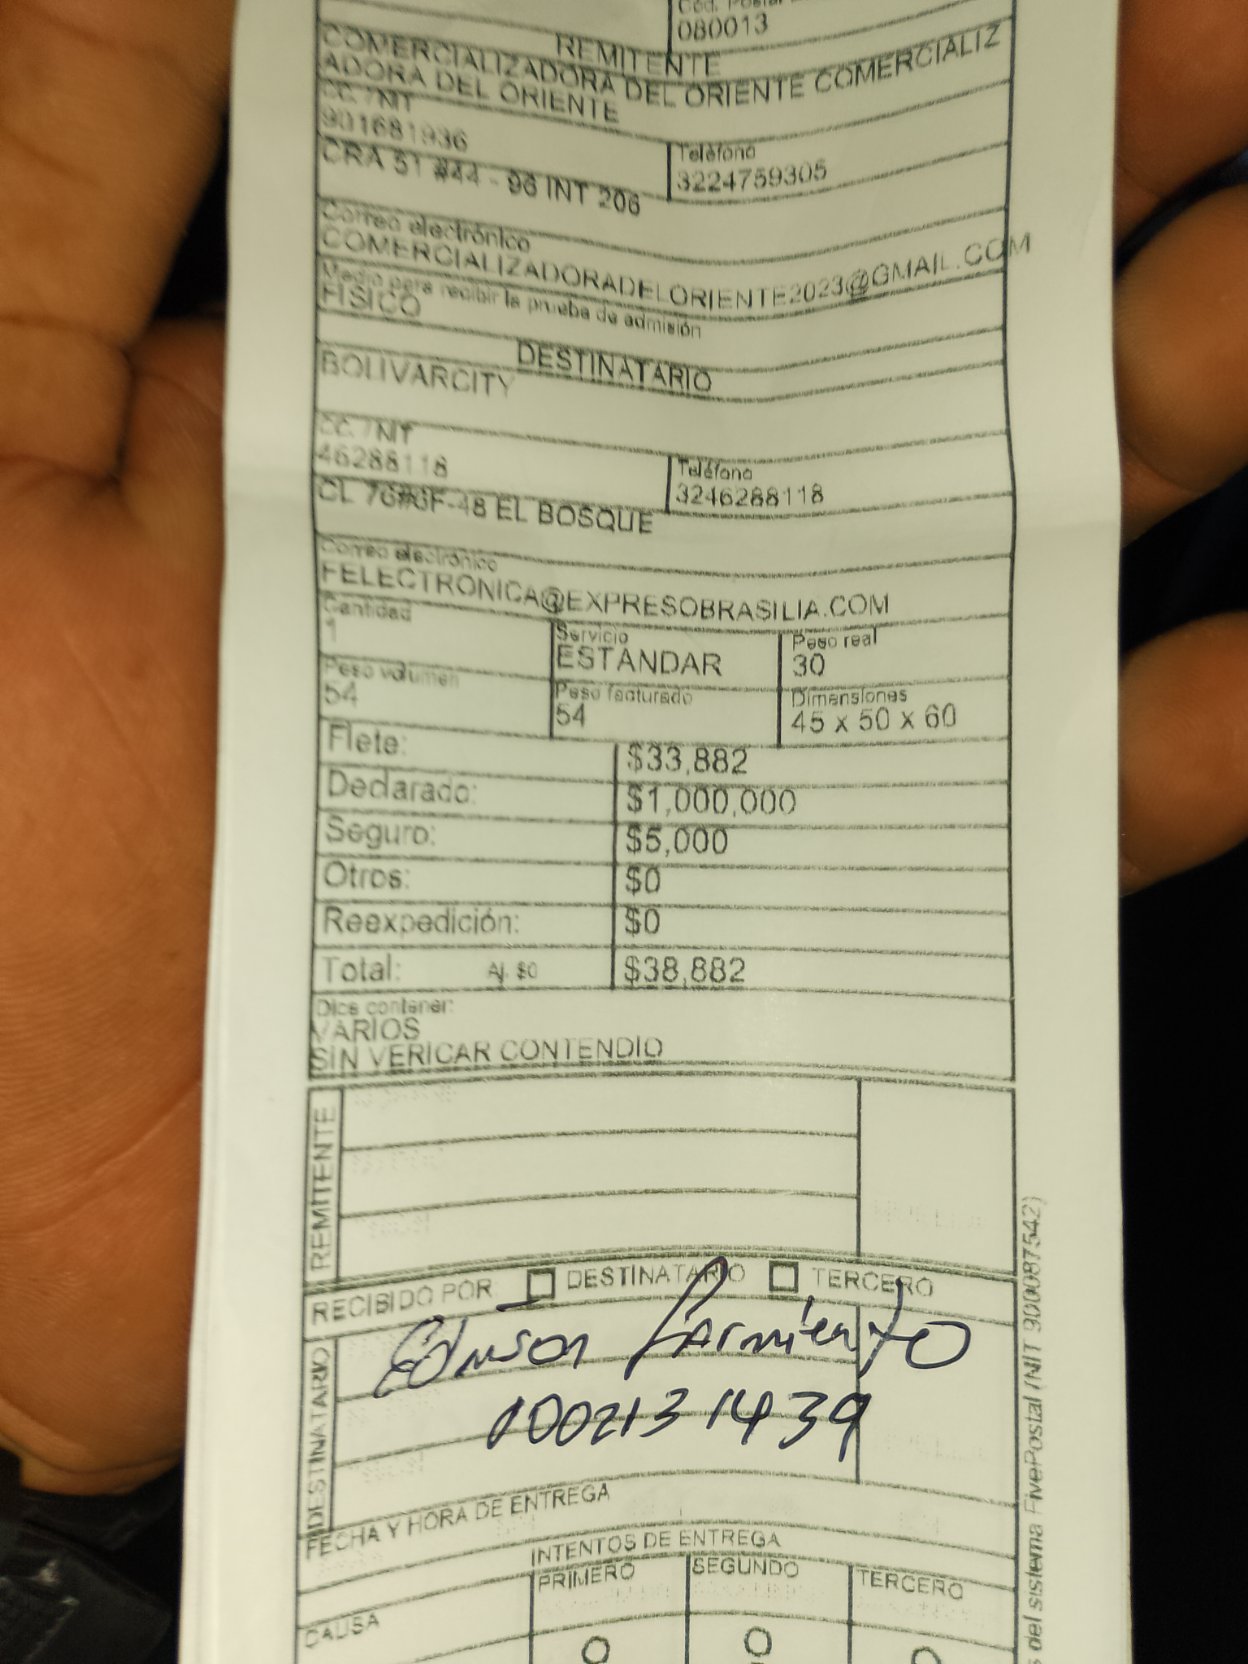 Cód. Postal
080013
REMITENTE
COMERCIALIZADORA DEL ORIENTE COMERCIALIZ
ADORA DEL ORIENTE
CC. / NIT
901681936
Teléfono
3224759305
CRA 51 #44 - 96 INT 206
Correo electrónico
COMERCIALIZADORADELORIENTE2023@GMAIL.COM
Medio para recibir la prueba de admisión
FISICO
DESTINATARIO
BOLIVARCITY
CC. / NIT
46288118
Teléfono
3246288118
CL 76#6F-48 EL BOSQUE
Correo electrónico
FELECTRONICA@EXPRESOBRASILIA.COM
Cantidad
1
Servicio
ESTANDAR
Peso real
30
Peso volumen
54
Peso facturado
54
Dimensiones
45 x 50 x 60
Flete: $33,882
Declarado: $1,000,000
Seguro: $5,000
Otros: $0
Reexpedición: $0
Total: Aj. $0 $38,882
Dice contener:
VARIOS
SIN VERICAR CONTENDIO
REMITENTE
RECIBIDO POR: DESTINATARIO TERCERO
DESTINATARIO
Edinson Sarmiento
1002131439
FECHA Y HORA DE ENTREGA
INTENTOS DE ENTREGA
CAUSA
PRIMERO
SEGUNDO
TERCERO
del sistema FivePostal (NIT 900087542)